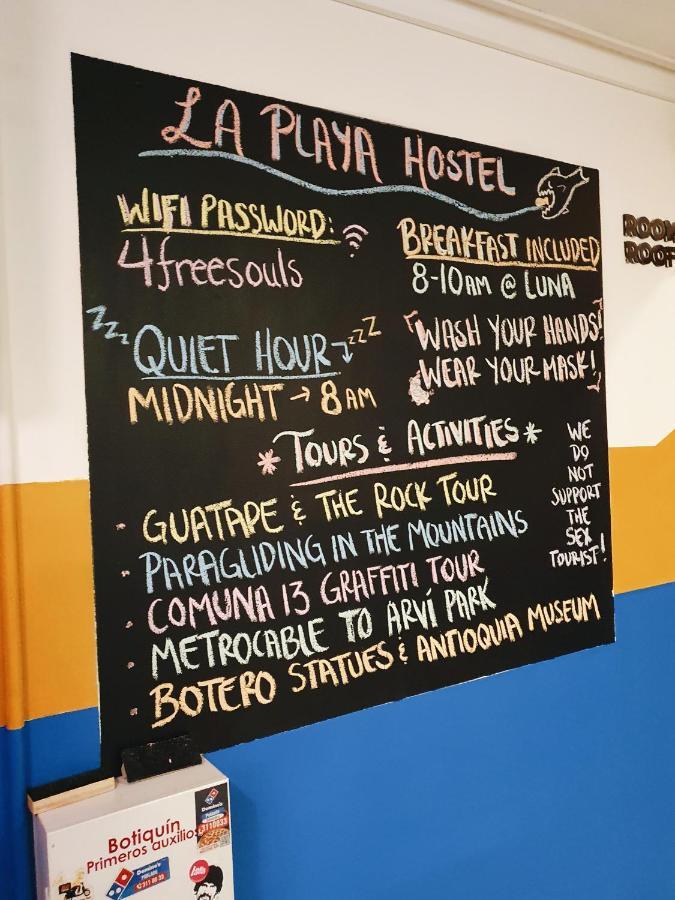 LA PLAYA HOSTEL
WIFI PASSWORD:
4freesouls
BREAKFAST INCLUDED
8-10AM @ LUNA
zzz QUIET HOUR zzz
MIDNIGHT → 8 AM
WASH YOUR HANDS!
WEAR YOUR MASK!
* TOURS & ACTIVITIES *
· GUATAPE & THE ROCK TOUR
· PARAGLIDING IN THE MOUNTAINS
· COMUNA 13 GRAFFITI TOUR
· METROCABLE TO ARVÍ PARK
· BOTERO STATUES & ANTIOQUIA MUSEUM
WE
DO
NOT
SUPPORT
THE
SEX
TOURIST!
ROOM
ROOF
Botiquín
Primeros auxilios
Domino's
3110033
Domino's
311 00 33